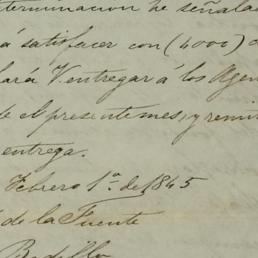 terminacion he señala
á satisfacer con (4000) d
hará V. entregar á los Agen
de el presente mes, y remi
entrega.
Febrero 1º de 1845
de la Fuente
Badillo